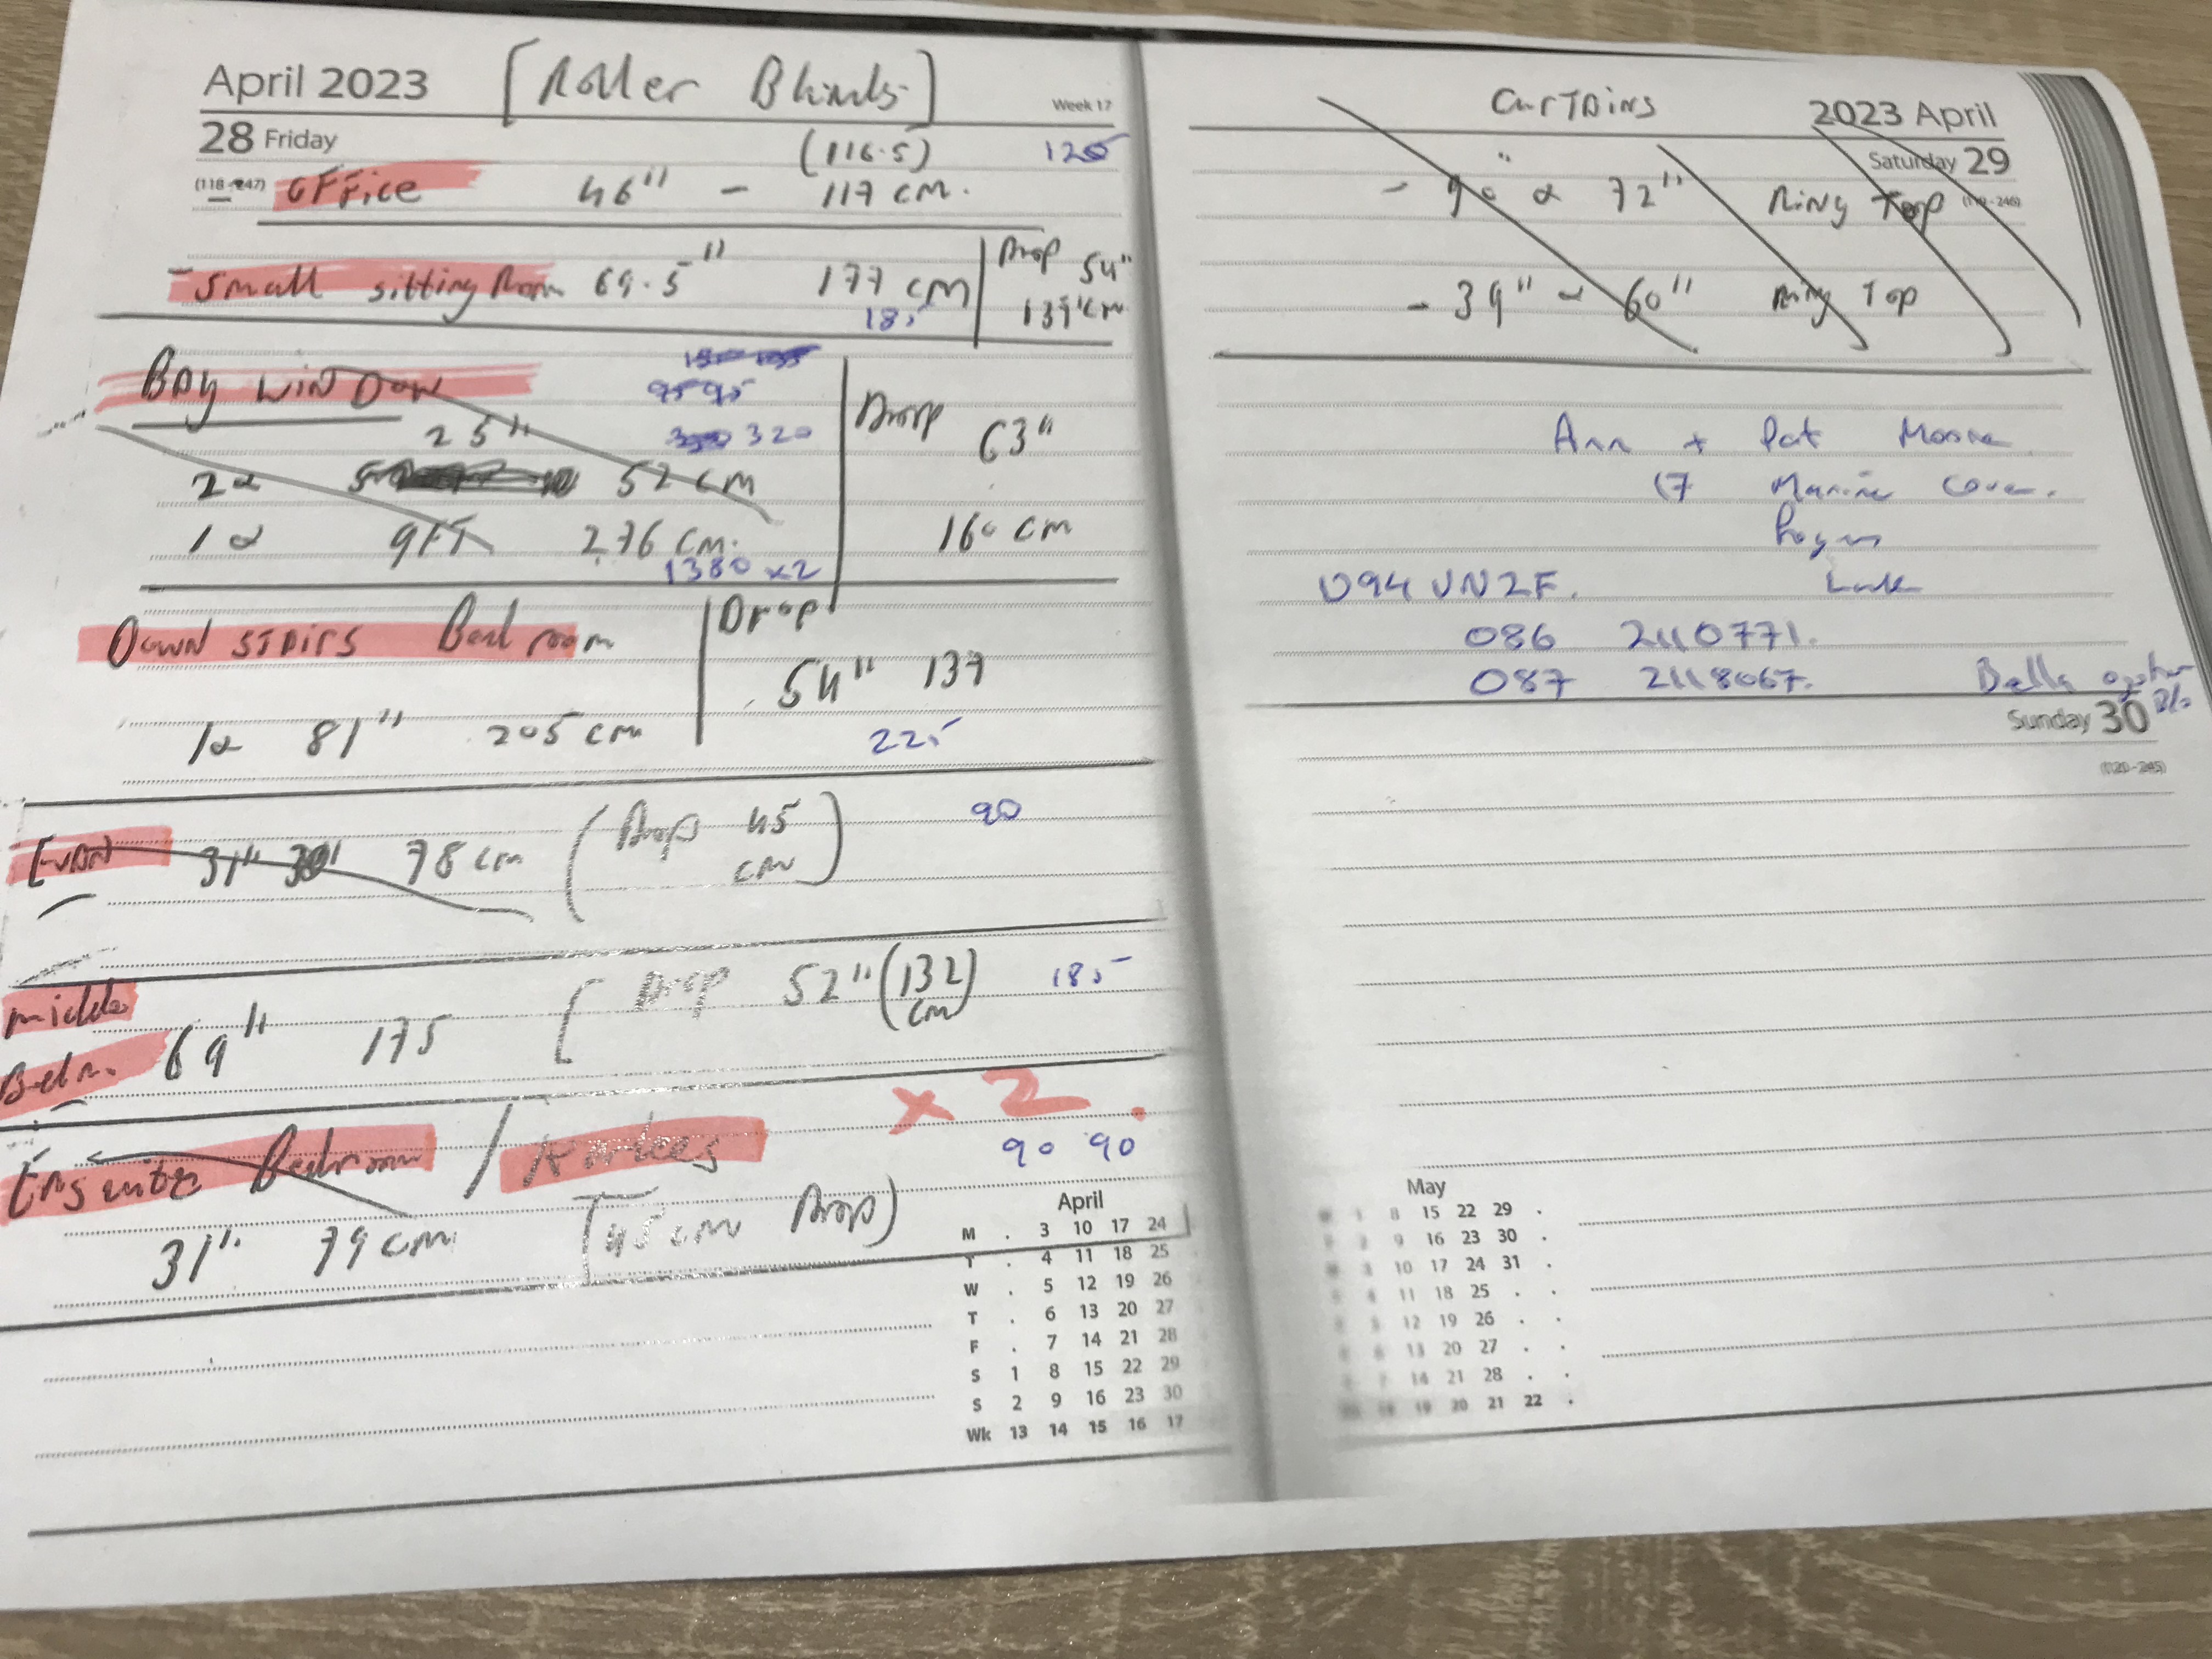 April 2023 [Roller Blinds]
Week 17
28 Friday (116.5) 125
(118-247) OFFice 46" - 117 cm.
- Small sitting Room 69.5" 177 cm Drop 54"
185 139 cm
BAy WINDOW
95 95
25" 320 Drop 63"
2x 52 cm
1x 9FT 276 cm. 160 cm
1380 x2
DOWN STAIRS Bedroom Drop
54" 137
1x 81" 205 cm
225
90
31" 78 cm (Drop 45 cm)
middle
Bedm. 69" 175 [Drop 52" (132 cm) 185
x 2.
Ensuite Bedroom /
90 90
31" 79 cm [45 cm Drop)
April
M . 3 10 17 24
T . 4 11 18 25
W . 5 12 19 26
T . 6 13 20 27
F . 7 14 21 28
S 1 8 15 22 29
S 2 9 16 23 30
Wk 13 14 15 16 17
CurTains 2023 April
Saturday 29
- 90" x 72" Ring Top (119-246)
- 39" x 60" Ring Top
Ann + Pat
17 Marine Cove.
094 VN2F.
086 2110771.
087 2118067.
Bella
Sunday 30
(120-245)
May
1 8 15 22 29 .
2 9 16 23 30 .
3 10 17 24 31 .
4 11 18 25 . .
5 12 19 26 . .
6 13 20 27 . .
7 14 21 28 . .
18 19 20 21 22 .